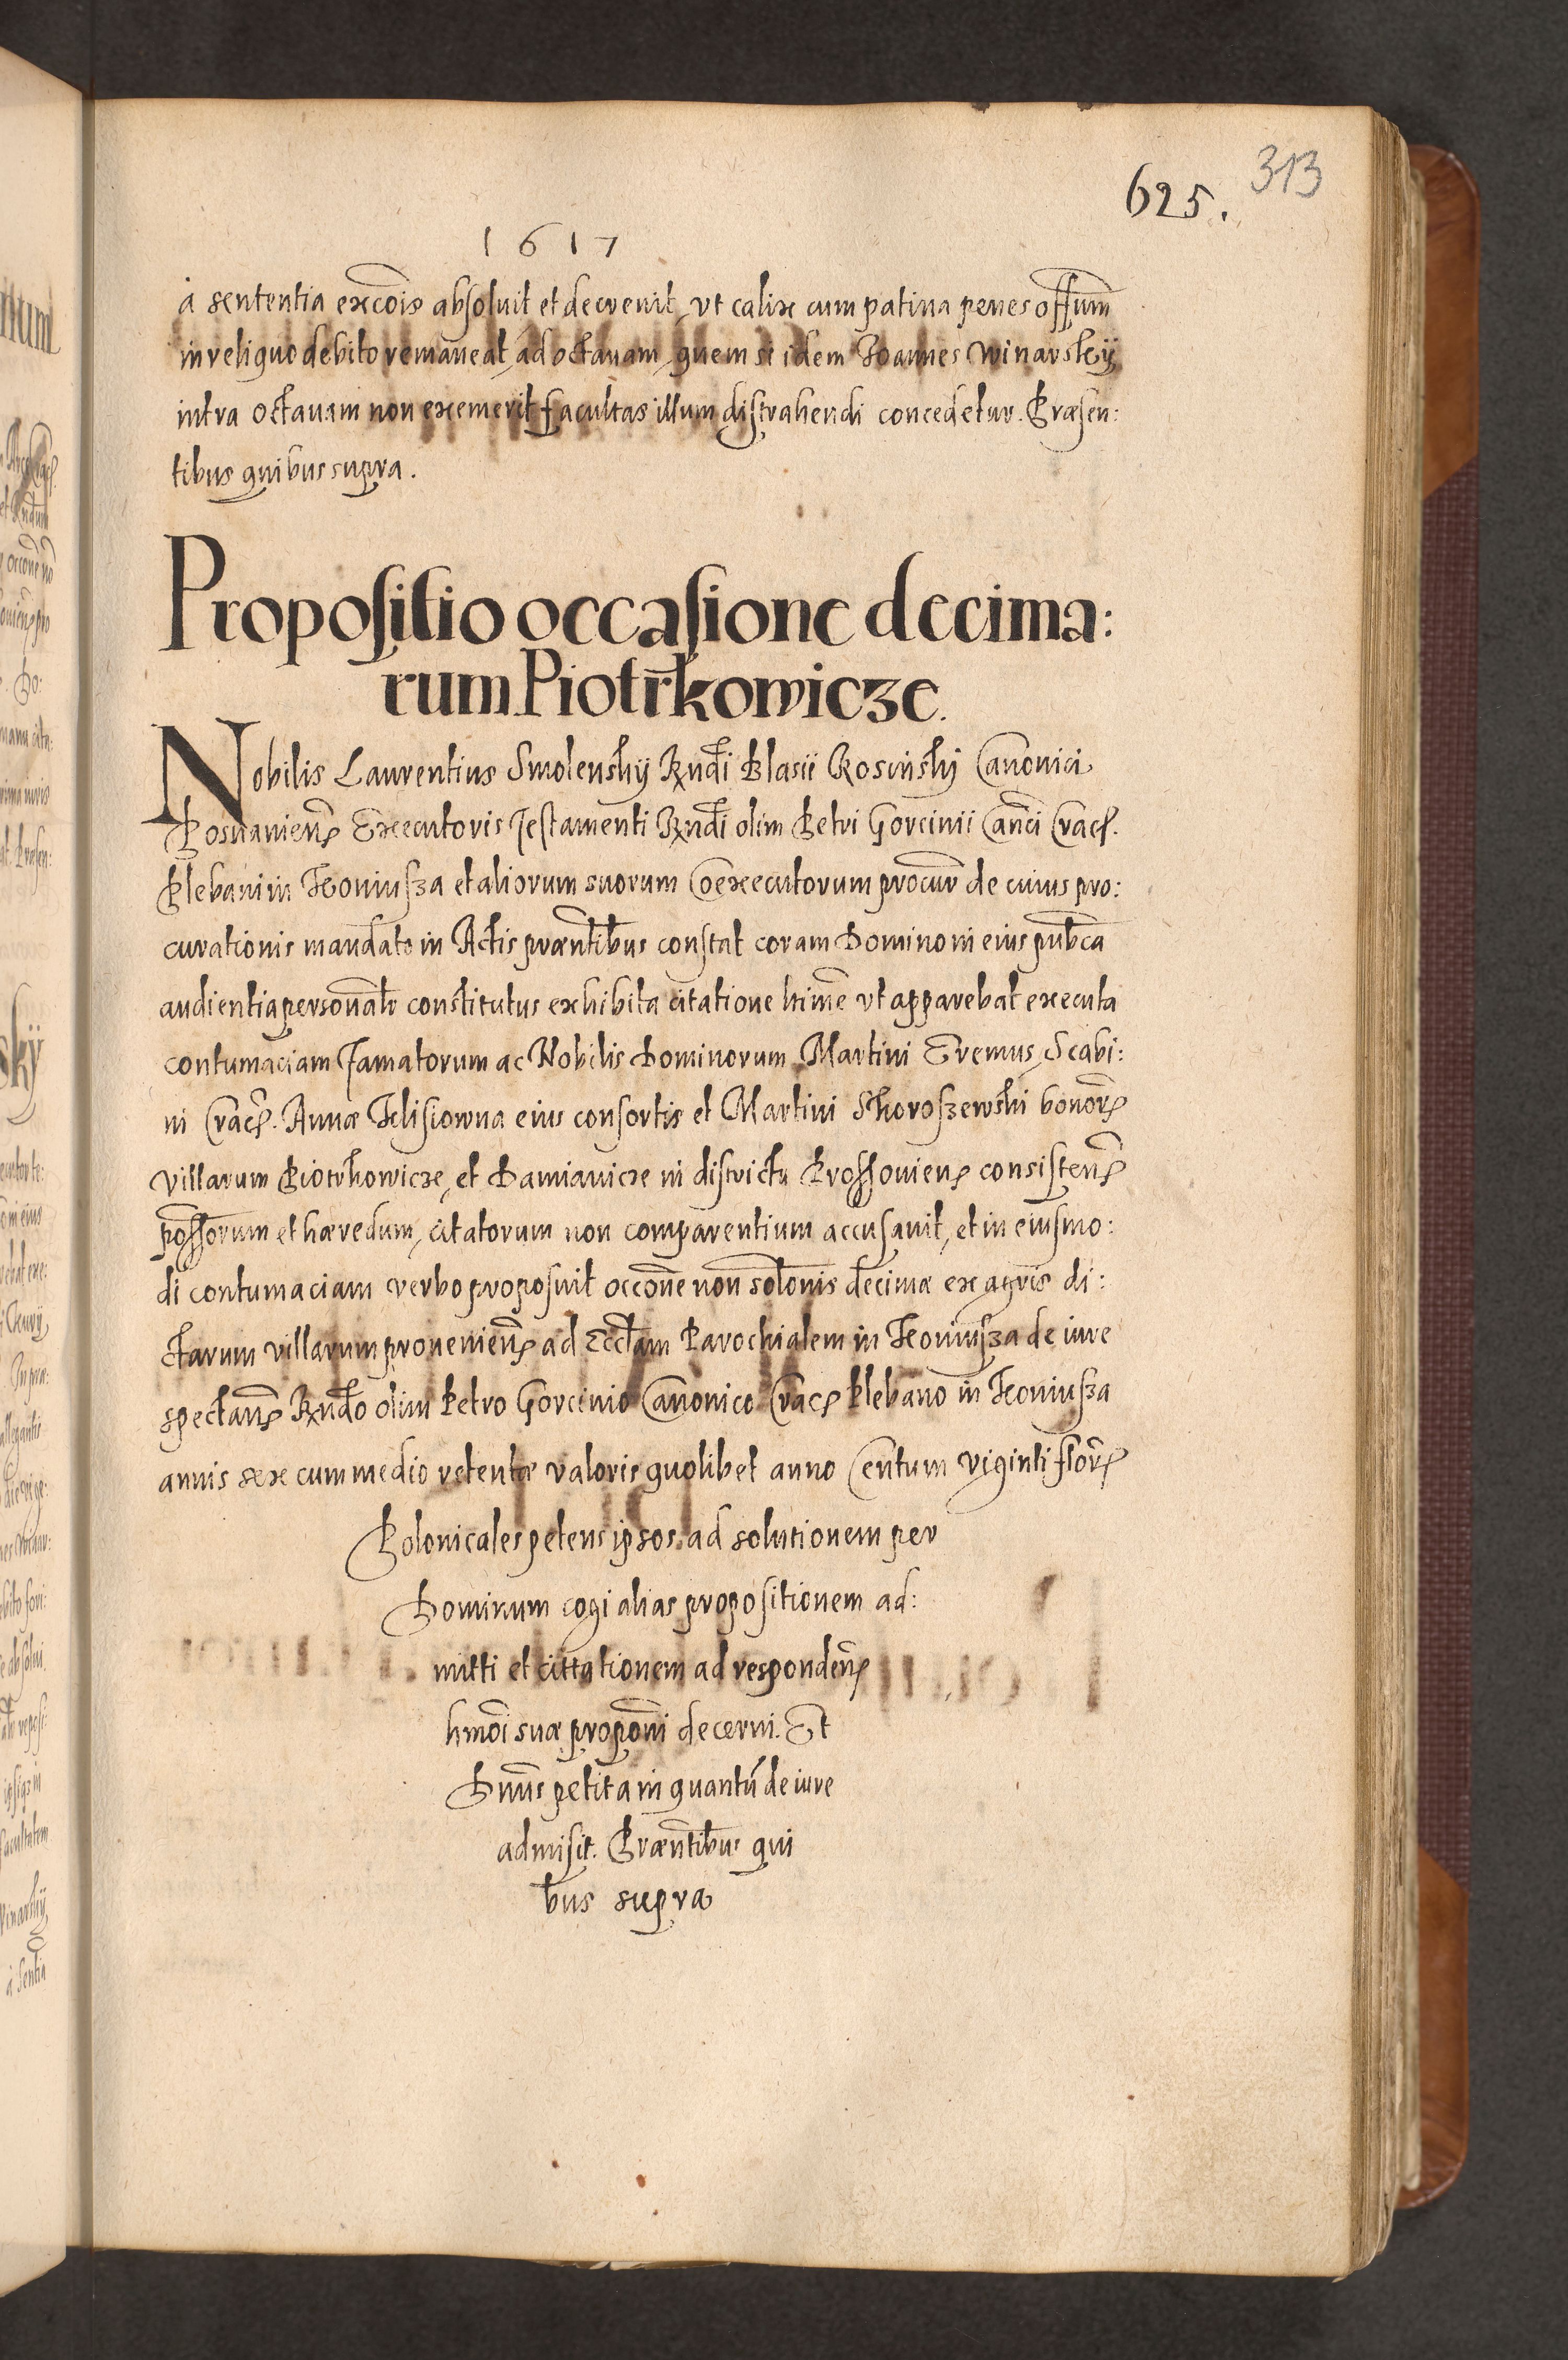 625. 313
1617
à sententia excois absoluit et decreuit, vt calix cum patina penes offium
in reliquo debito remaneat, ad octauam, quem si idem Joannes Winarskij
intra octauam non exemerit facultas illum distrahendi concedetur. Præsen:
tibus quibus supra.
Propositio occasione decima:
rum Piotrkowicze.
Nobilis Laurentius Smolenskij Rndi Blasii Rosinski Canonici
Posnaniens Executoris Testamenti Rndi olim Petri Gorcinii Canci Crac.
Plebani in Koniusza et aliorum suorum Coexecutorum procur de cuius pro:
curationis mandato in Actis præntibus constat coram Domino in eius publca
audientia personalr constitutus exhibita citatione ltime vt apparebat executa
contumaciam Famatorum ac Nobilis Dominorum Martini Eremus, Scabi:
ni Crac. Annæ Felisiowna eius consortis et Martini Skoroszewski bonor
villarum Piotrkowicze, et Damianice in districtu Prossouiens consistens
possorum et hæredum, citatorum non comparentium accusauit, et in eiusmo:
di contumaciam verbo proposuit occone non solonis decimæ ex agris di:
ctarum villarum prouenien ad Ecclam Parochialem in Koniusza de iure
spectan Rndo olim Petro Gorcinio Canonico Crac Plebano in Koniusza
annis sex cum medio retentæ valoris quolibet anno Centum viginti flor
Polonicales petens ipsos ad solutionem per
Dominum cogi alias propositionem ad:
mitti et cittationem ad responden
hmoi suæ proponi decerni. Et
Dnus petita in quantū de iure
admisit. Præntibus qui
bus supra